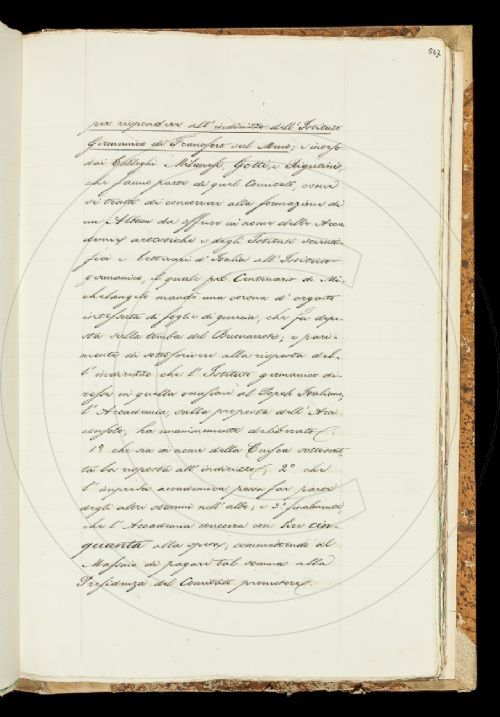 567
per rispondere all'indirizzo dell'Istituto
Germanico di Francfort sul Meno; e inteso
dai Colleghi Milanesi, Gotti, e Rigutini,
che fanno parte di quel Comitato, come
si tratti di concorrere alla formazione di
un Album da offrire in nome delle Acca-
demie artistiche e degli Istituti scienti-
fici e letterari d'Italia all'Istituto
germanico, il quale pel Centenario di Mi-
chelangelo mandò una corona d'argento
intessuta di foglie di quercia, che fu depo-
sta sulla tomba del Buonarroti; e pari-
mente di sottoscrivere alla risposta del-
l'indirizzo che l'Istituto germanico di-
resse in quella occasione al Popolo Italiano,
l'Accademia, sulla proposta dell'Arci-
consolo, ha unanimemente deliberato:
1.º che sia in nome della Crusca sottoscrit-
ta la risposta all'indirizzo; 2.º che
l'impresa accademica possa far parte
degli altri stemmi nell'albo; e 3.º finalmente
che l'Accademia concorra con lire cin-
quanta alla spesa, commettendo al
Massaio di pagare tal somma alla
Presidenza del Comitato promotore.